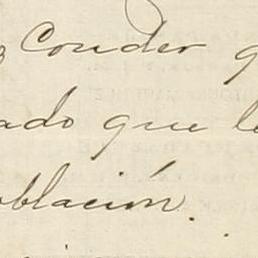 Conder q
ado que l
oblación.